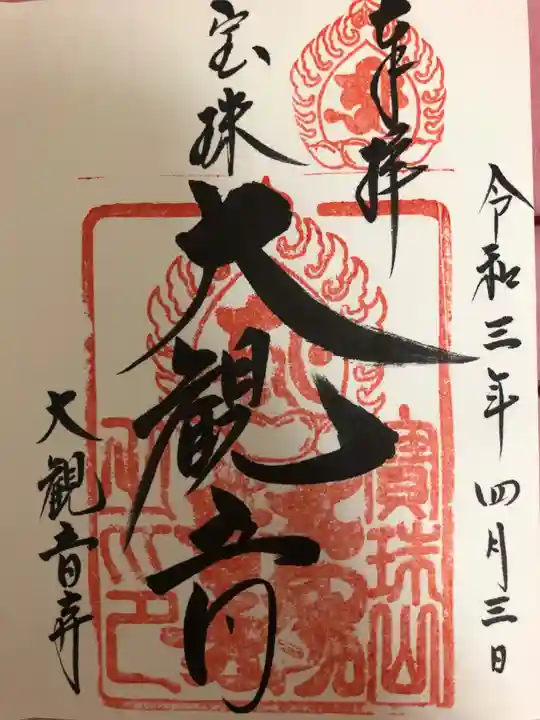 令和三年四月三日
奉拝
宝珠
大観音
大観音寺
寶珠山